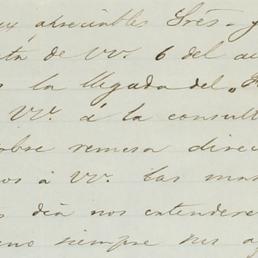 apreciables Sres
de VV. 6 del
la llegada del
VV. á la consul
sobre remesa direc
á VV. las
día nos entendere
siempre sus